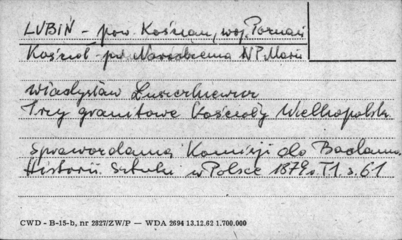 LUBIŃ - pow. Kościan, woj. Poznań
Kościół p.w. Narodzenia NP Marii
Władysław Łuszczkiewicz
Trzy granitowe Kościoły Wielkopolski
Sprawozdania Komisji do Badania
Historii Sztuki w Polsce 1879 r. T1. s. 61
CWD - B-15-b, nr 2827/ZW/P — WDA 2694 13.12.62 1.700.000